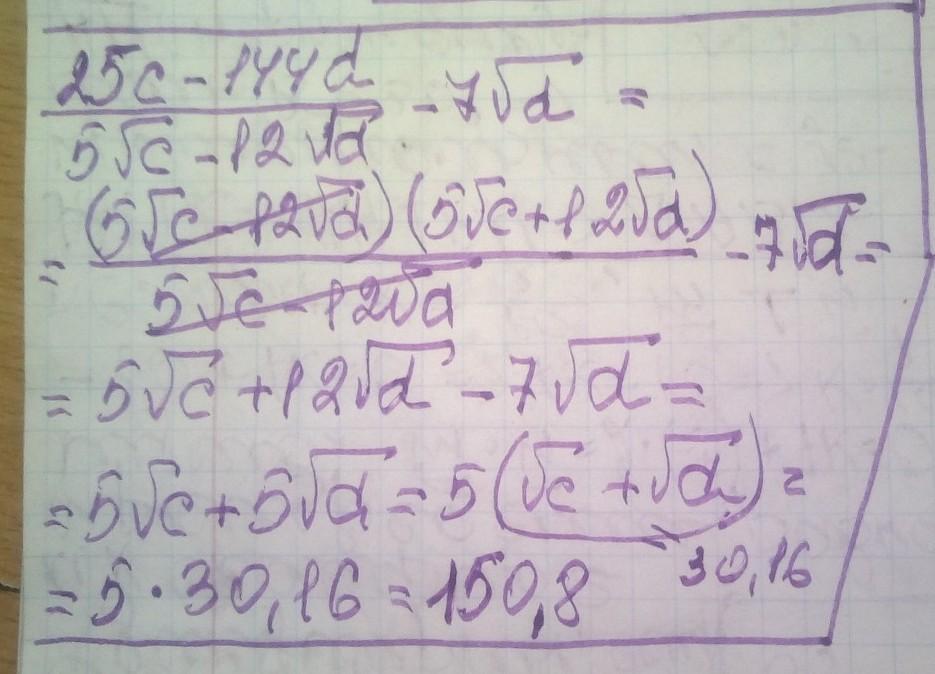 25c - 144d
5√c - 12√d
- 7√d =
= (5√c - 12√d)(5√c + 12√d)
5√c - 12√d
- 7√d =
= 5√c + 12√d - 7√d =
= 5√c + 5√d = 5(√c + √d) =
30,16
= 5 · 30,16 = 150,8